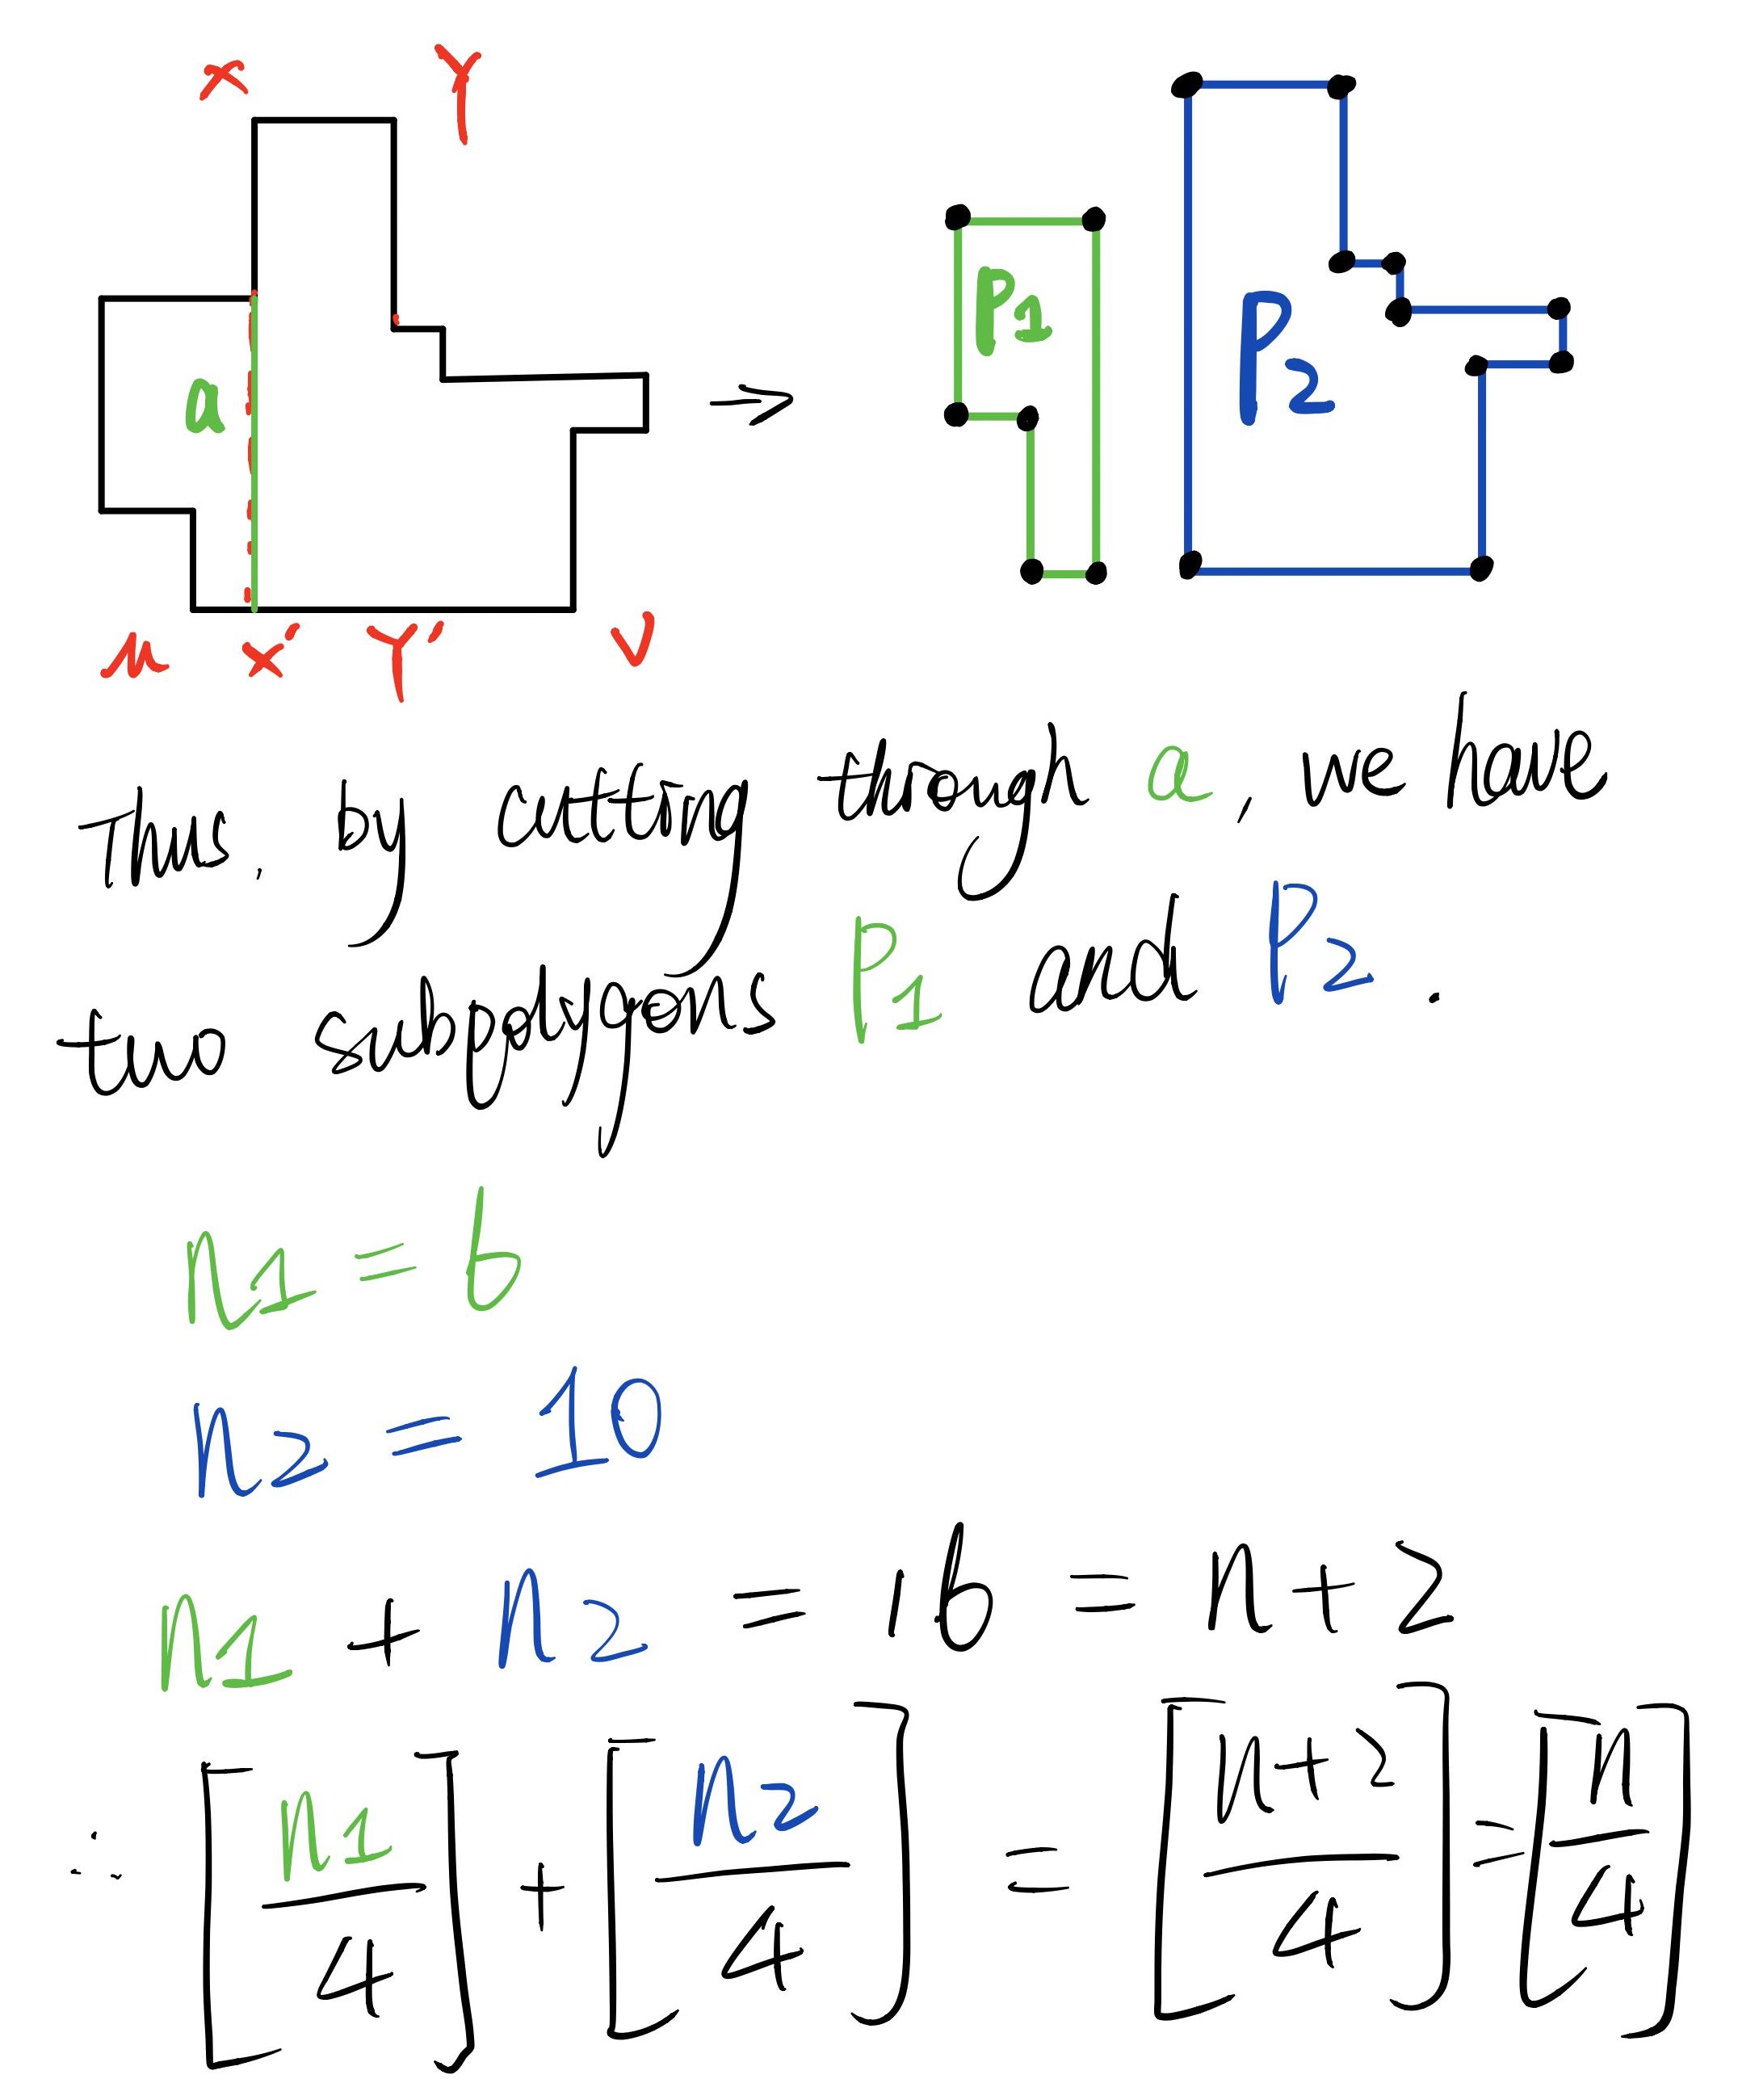 X Y
a
P1 P2
→
u X' Y' v
Thus, by cutting though a, we have
two subpolygons P1 and P2.
n1 = 6
n2 = 10
n1 + n2 = 16 = n+2
∴ [n1/4] + [n2/4] = [n+2/4] = [n/4]